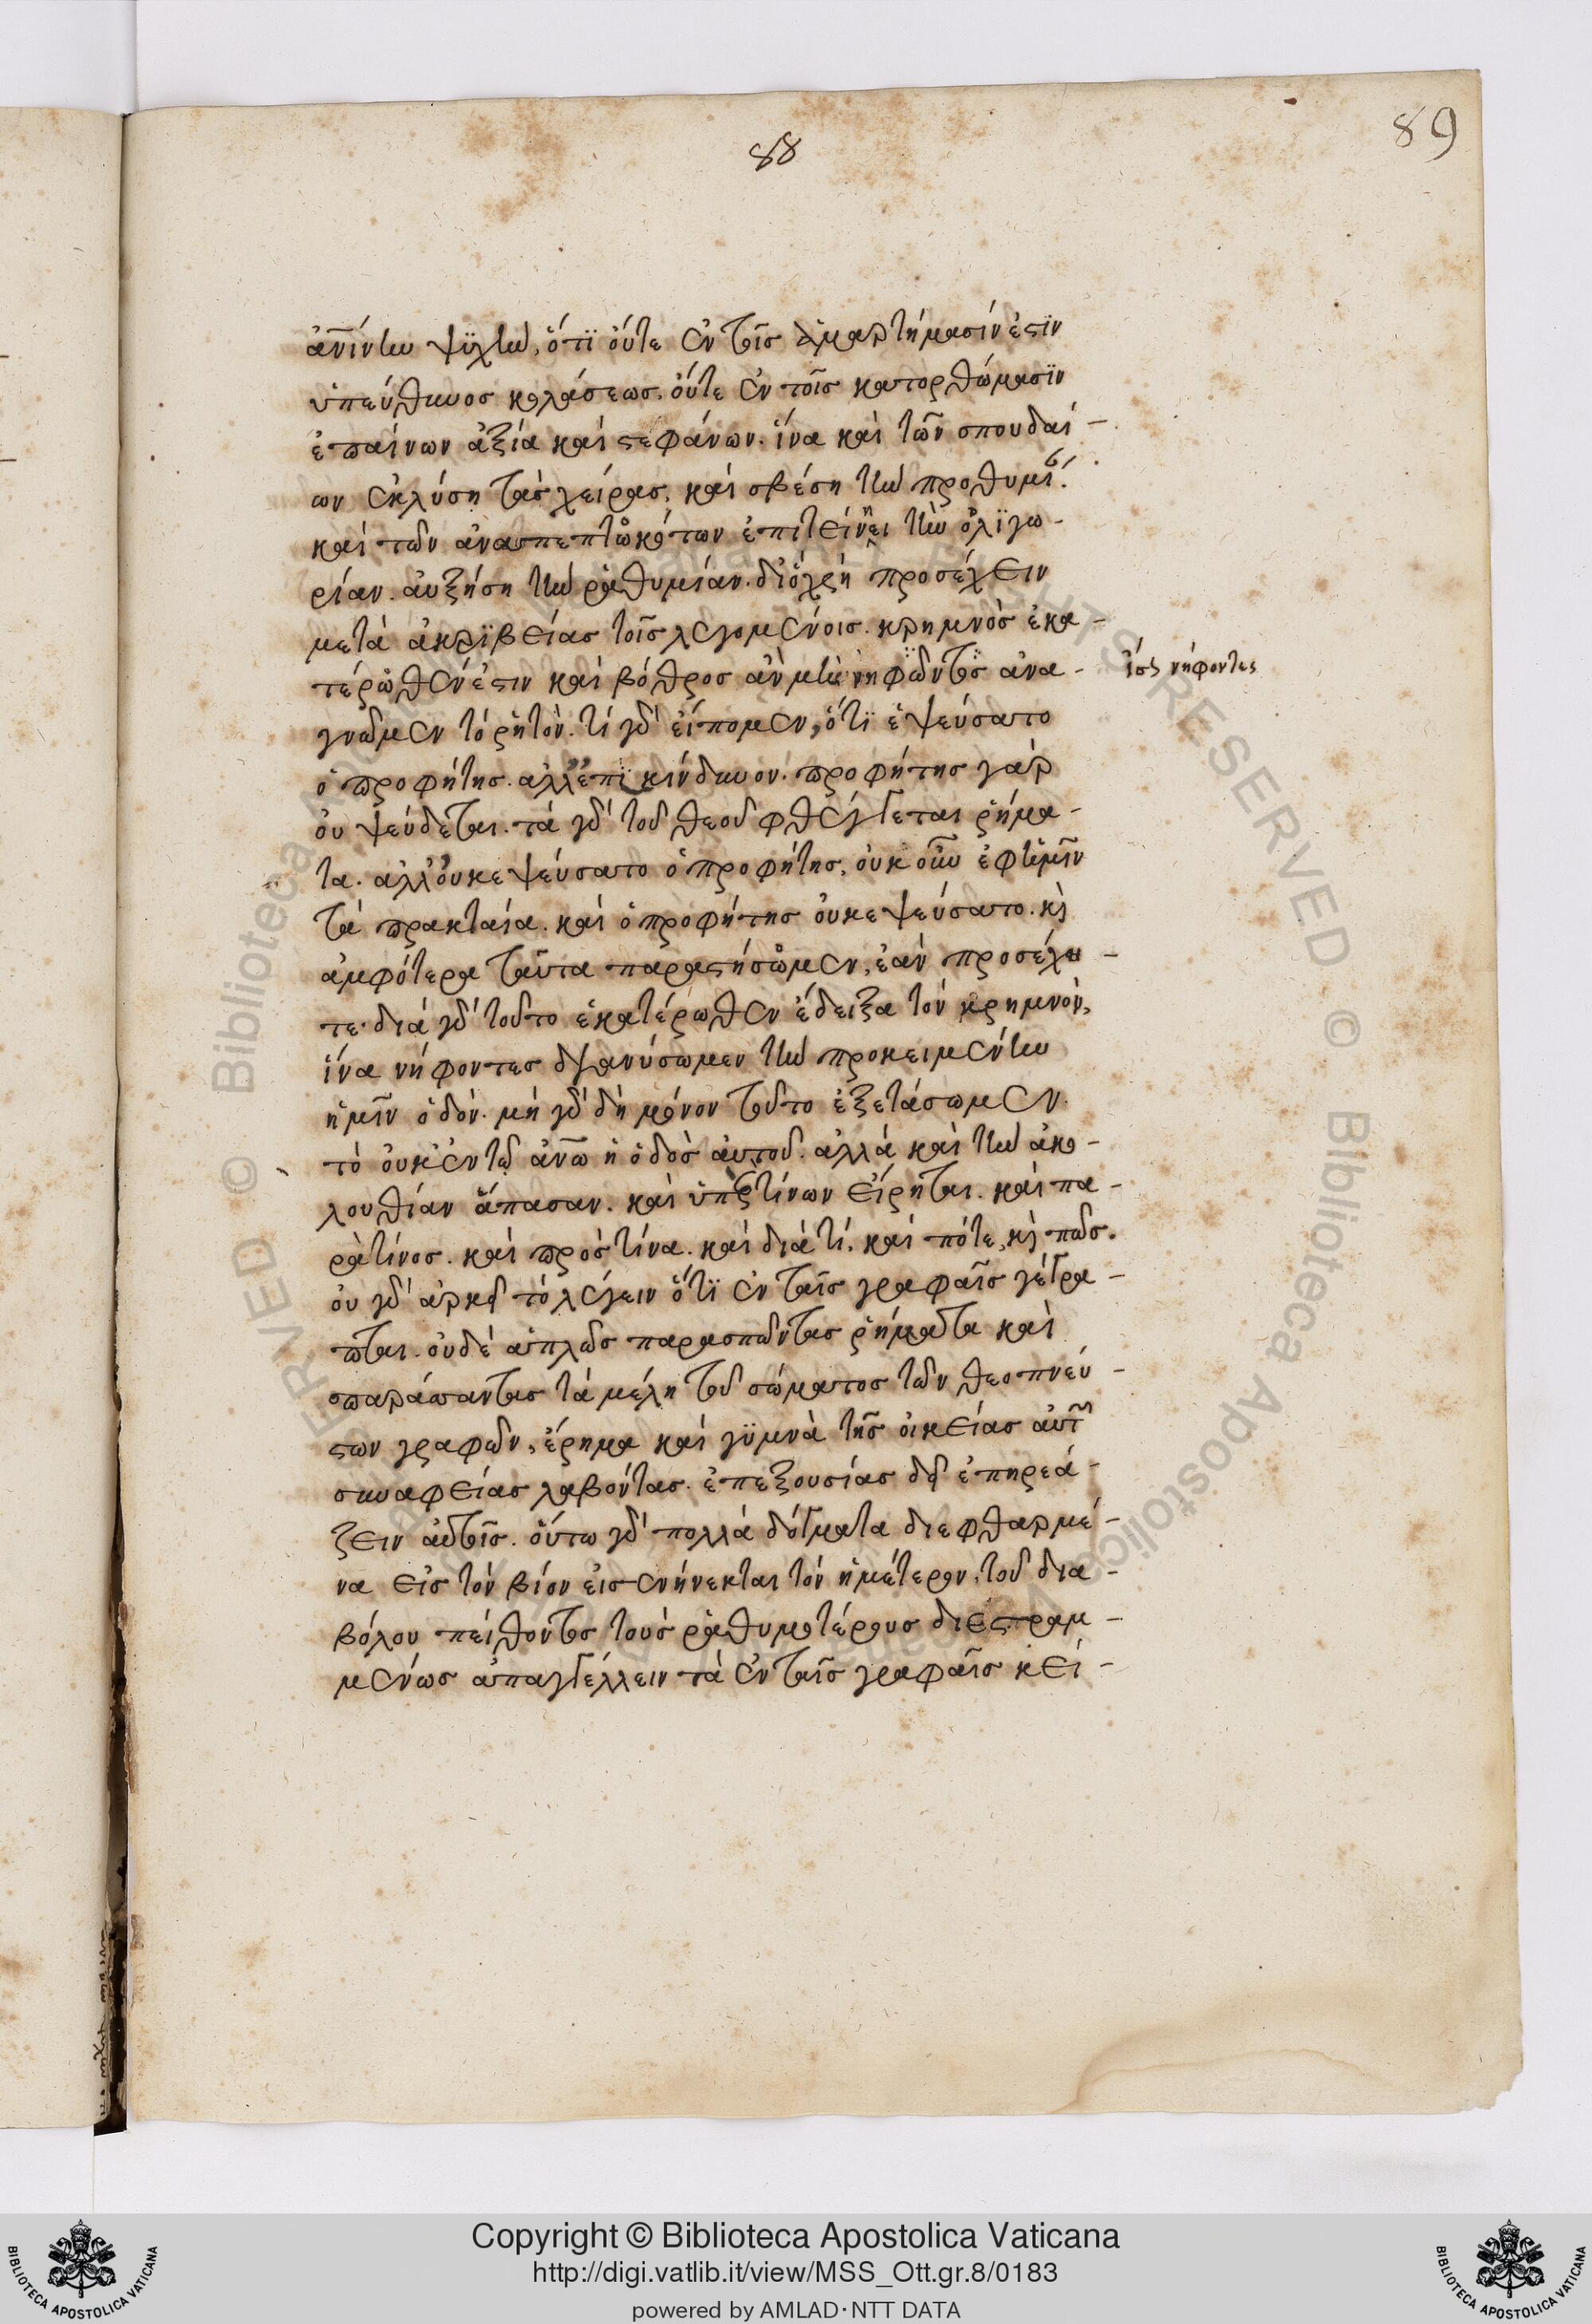 88
89
ἀνίνην ψυχὴν, ὅτι οὔτε ἐν τοῖς ἁμαρτήμασίν ἐστιν
ὑπεύθυνος κολάσεως. οὔτε ἐν τοῖς κατορθώμασιν
ἐπαίνων ἀξία καὶ στεφάνων. ἵνα καὶ τῶν σπουδαί-
ων ἐκλύση τὰς χεῖρας, καὶ σβέση τὴν προθυμί.
καὶ τῶν ἀναπεπτωκότων ἐπιτείνει τὴν ὀλιγω-
ρίαν. αὐξήση τὴν ῥαθυμίαν. διὸ χρὴ προσέχειν
μετὰ ἀκριβείας τοῖς λεγομένοις. κρημνὸς ἑκα-
τέρωθέν ἐστιν καὶ βόθρος ἀν μὴ νηφῶντες ἀνα-
ἴσς νήφοντες
γνῶμεν τὸ ῥητόν. τί γὰρ εἴπομεν, ὅτι ἐψεύσατο
ὁ προφήτης. ἀλλ' ἐπικίνδυνον. προφήτης γὰρ
οὐ ψεύδεται. τὰ γὰρ τοῦ θεοῦ φθέγγεται ῥήμα-
τα. ἀλλ' οὐκ ἐψεύσατο ὁ προφήτης, οὐκ οὖν ἐφ' ἡμῖν
τὰ πρακταία. καὶ ὁ προφήτης οὐκ ἐψεύσατο. κὶ
ἀμφότερα ταῦτα παραστήσωμεν, ἐὰν προσέχη-
τε. διὰ γὰρ τοῦτο ἑκατέρωθεν ἔδειξα τὸν κρημνὸν,
ἵνα νήφοντες διανύσωμεν τὴν προκειμένην
ἡμῖν ὁδόν. μὴ γὰρ δὴ μόνον τοῦτο ἐξετάσωμεν.
τὸ οὐκ ἐν τῶ ἀνω ἡ ὁδὸς αὐτοῦ. ἀλλὰ καὶ τὴν ἀκο-
λουθίαν ἅπασαν. καὶ ὑπὲρ τίνων εἴρηται. καὶ πα-
ρὰ τίνος. καὶ πρὸς τίνα. καὶ διὰ τί. καὶ πότε, κὶ πῶς.
οὐ γὰρ ἀρκεῖ τὸ λέγειν ὅτι ἐν ταῖς γραφαῖς γέγρα-
πται. οὐδὲ ἁπλῶς παρασπῶντας ῥήματα καὶ
σπαράπαντας τὰ μέλη τοῦ σώματος τῶν θεοπνεύ-
στων γραφῶν, ἔρημα καὶ γυμνὰ τῆς οἰκείας αὐτῶν
συναφείας λαβόντας. ἐπεξουσίας δεῖ ἐπηρεά-
ζειν αὐτοῖς. οὕτω γὰρ πολλὰ δόγματα διεφθαρμέ-
να εἰς τὸν βίον εἰσενήνεκται τὸν ἡμέτερον, τοῦ δια-
βόλου πείθοντος τοὺς ῥαθυμοτέρους διεστραμ-
μένως ἀπαγγέλλειν τὰ ἐν ταῖς γραφαῖς κεί-
Copyright © Biblioteca Apostolica Vaticana
http://digi.vatlib.it/view/MSS_Ott.gr.8/0183
powered by AMLAD·NTT DATA